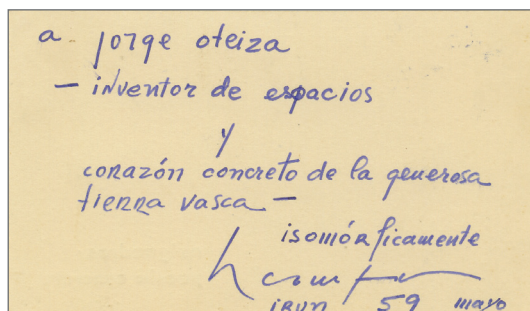 a jorge oteiza
— inventor de espacios
y
corazón concreto de la generosa
tierra vasca —
isomórficamente
irun 59 mayo